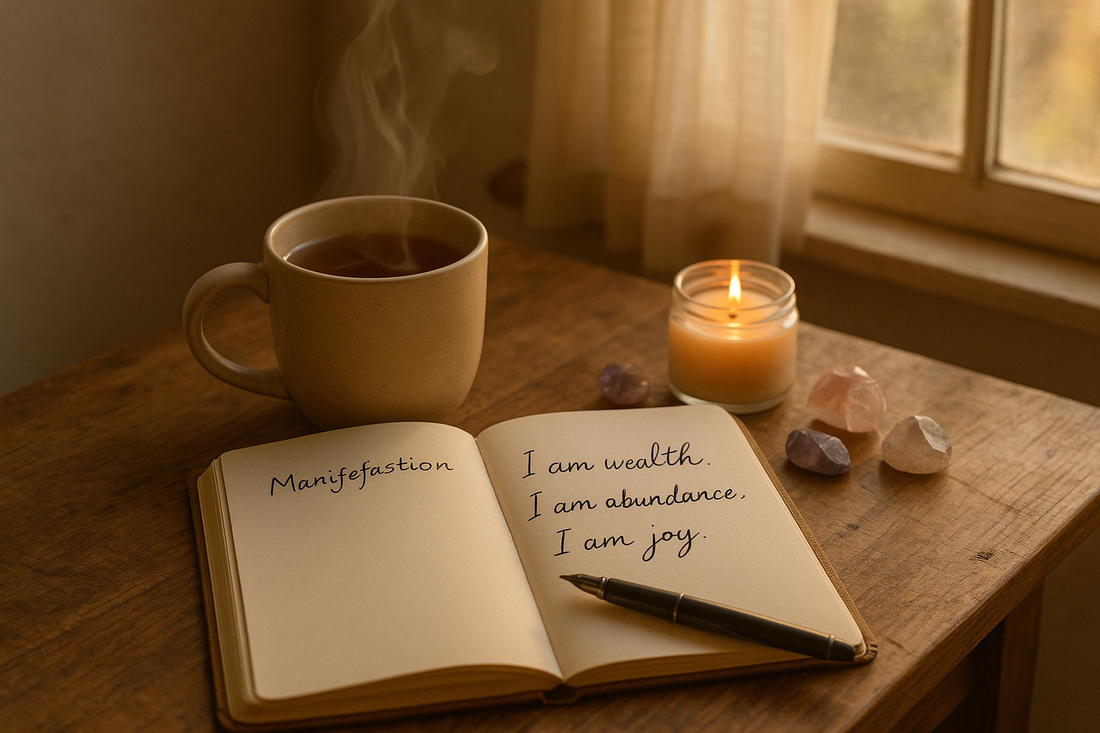 Manifefastion
I am wealth.
I am abundance,
I am joy.